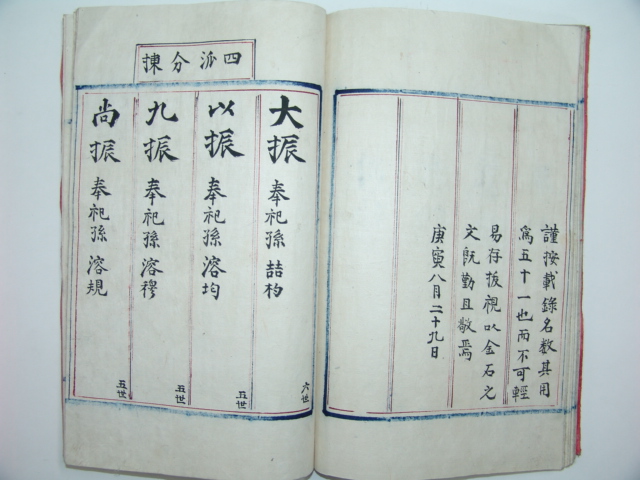 謹按載錄名數其用
爲五十一也而不可輕
易存拔視以金石之
文旣勤且敬焉
庚寅八月二十九日
四派分揀
大振 奉祀孫 喆杓 六世
以振 奉祀孫 溶均 五世
九振 奉祀孫 溶穆 五世
尚振 奉祀孫 溶規 五世